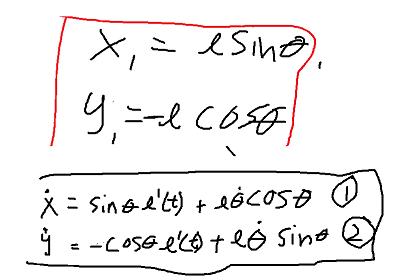 x₁ = ℓ sinθ,
y₁ = -ℓ cosθ
ẋ = sinθ ℓ'(t) + ℓθ̇ cosθ ①
ẏ = -cosθ ℓ'(t) + ℓθ̇ sinθ ②